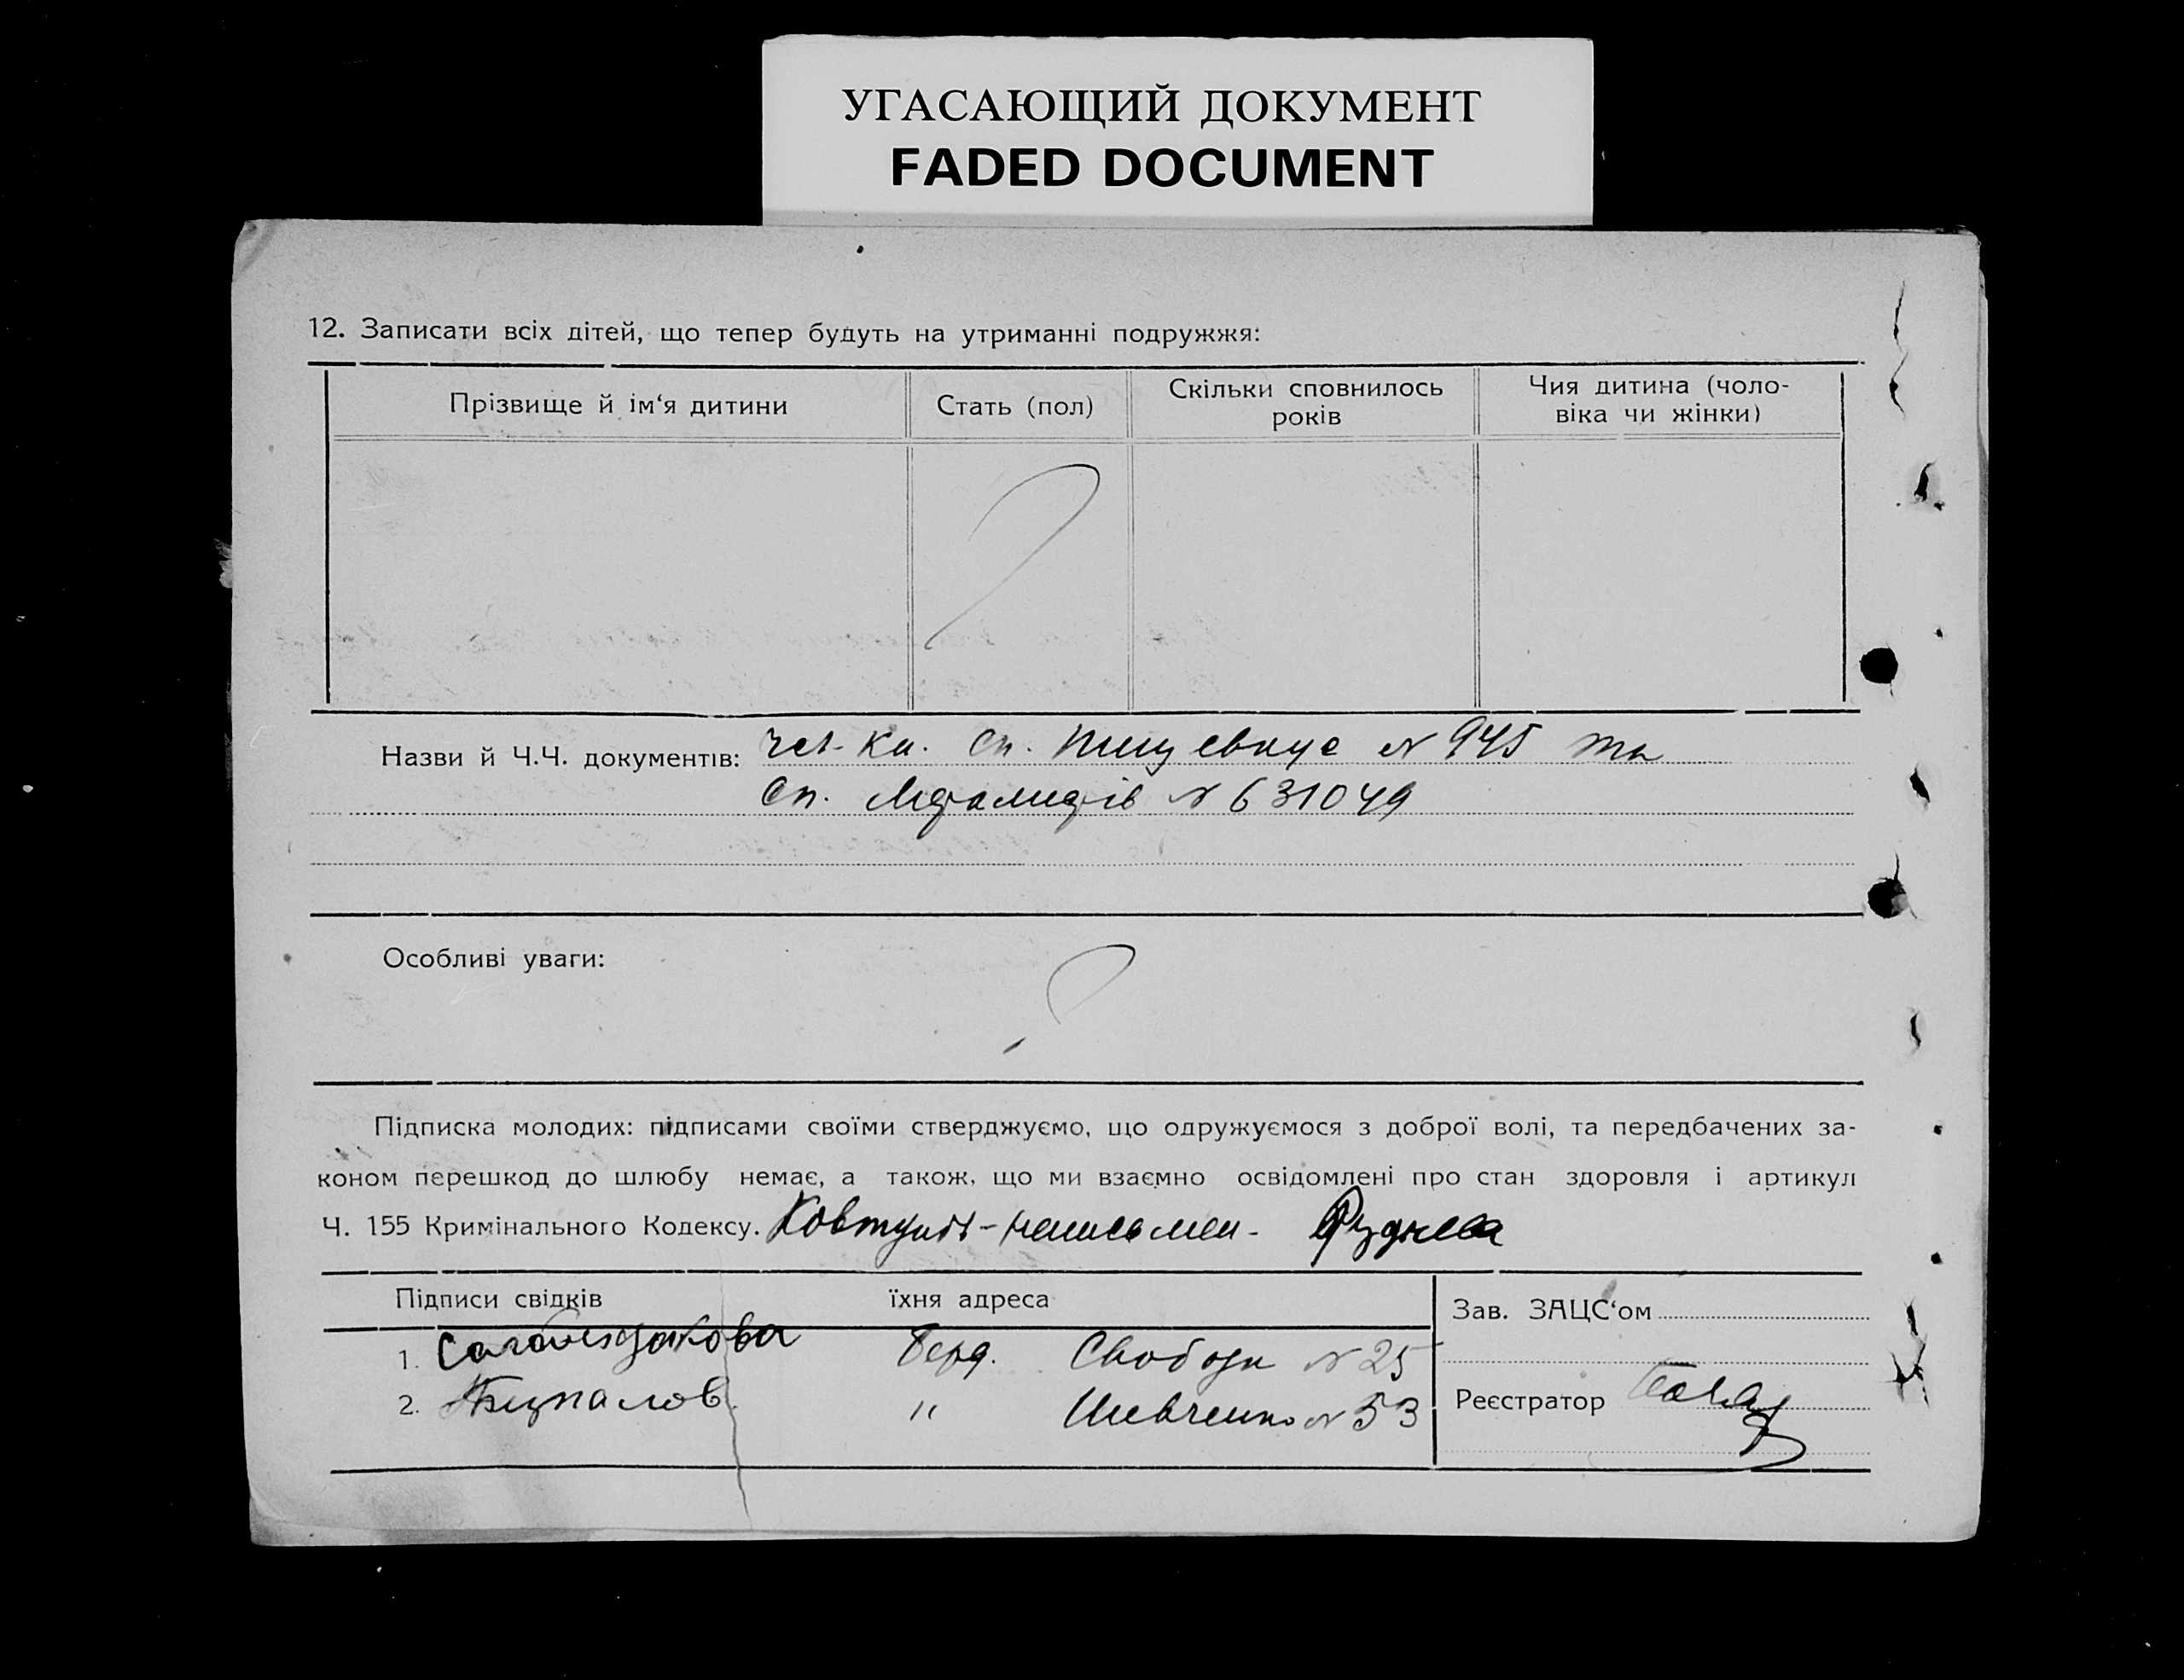 УГАСАЮЩИЙ ДОКУМЕНТ
FADED DOCUMENT
12. Записати всіх дітей, що тепер будуть на утриманні подружжя:
Прізвище й ім‘я дитини
Стать (пол)
Скільки сповнилось
років
Чия дитина (чоло-
віка чи жінки)
Назви й Ч.Ч. документів: чл. кн. сп. N 945 та
Сп. N 631049
Особливі уваги:
Підписка молодих: підписами своїми стверджуємо, що одружуємося з доброї волі, та передбачених за-
коном перешкод до шлюбу немає, а також, що ми взаємно освідомлені про стан здоровля і артикул
Ч. 155 Кримінального Кодексу. Ковтунъ - неписьмен.
Підписи свідків
їхня адреса
1. Берд. Свободи N 25
2. " Шевченко N 53
Зав. ЗАЦС‘ом
Реєстратор